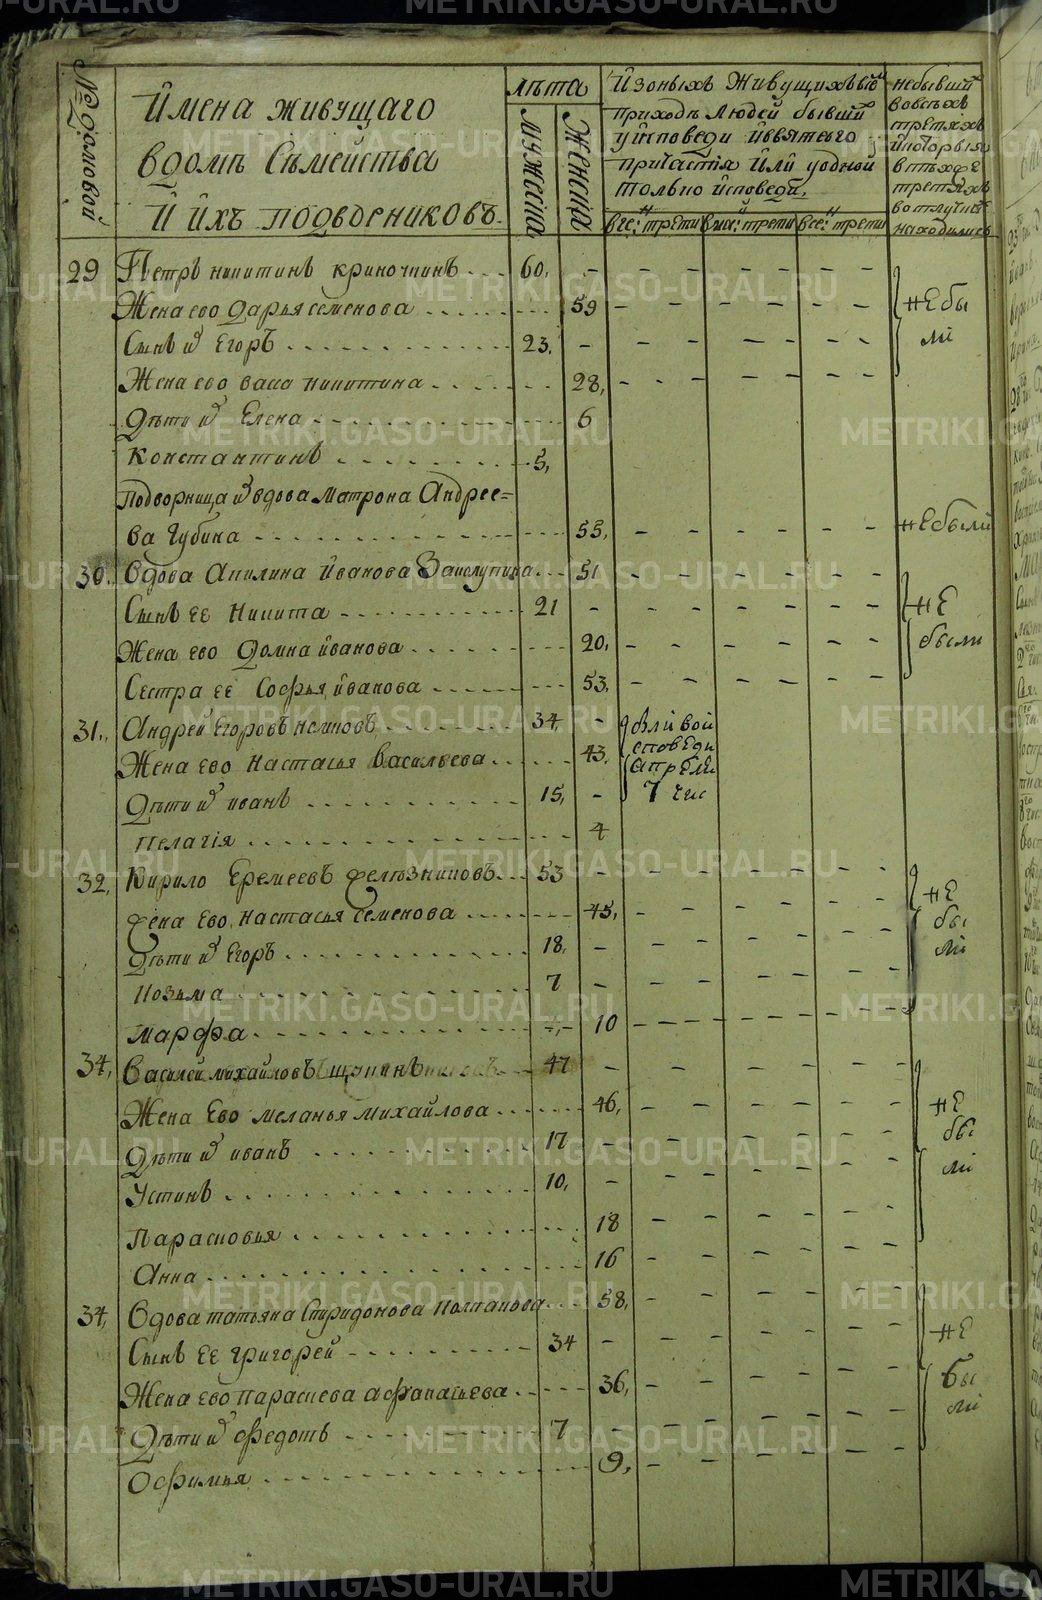 № домовой
Имена живущаго
вдомѣ Сѣмейства
И ихъ подворниковъ
лѣта
Мужеска
Женска
Изоныхъ живущихъ вѣ
приходѣ людей бывши
уисповеди ивсвятаго
причастiя или уодной
толко исповеди
небывши
вовсѣхъ
третяхъ
икоторыя
втѣхже
третяхъ
вотлучкѣ
находились
29 Петръ никитинъ криночкинъ 60,
Жена ево дарья семенова 59
небы
Сынъ и Егоръ 23,
ли
Жена ево васа никитина 28,
Дѣти и Елена 6
Константинъ 5,
Подворница и вдова матрона Андрее=
ва Губина 53, небыли
30. Вдова Акилина иванова 51
Сынъ ее Никита 21 не
Жена ево домна иванова 20, были
Сестра ее Софья иванова 53,
31. Андрей Егоровъ 34, были вои
Жена ево Настасья Васильева 43, споведи
апрѣля
Дѣти и иванъ 15, 7 чис
Пелагiя 4
32, Кирило Еремеевъ желѣзниковъ 53
не
жена ево Настасья Семенова 45,
бы
Дѣти и Егоръ 18,
ли
Козьма 7
Марфа 10
34, Василей михайловъ 47
Жена Ево меланья михайлова 46, не
Дѣти и иванъ 17 бы
ли
Устинъ 10,
Парасковья 18
Анна 16
34, Вдова татьяна Спиридонова 58,
не
Сынъ ее григорей 34
Жена ево параскева афанасьева 36, бы
ли
Дѣти и федотъ 7
Офимья 9,
METRIKI.GASO-URAL.RU